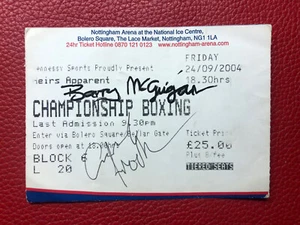 Nottingham Arena at the National Ice Centre,
Bolero Square, The Lace Market, Nottingham, NG1 1LA
24hr Ticket Hotline 0870 121 0123 www.nottingham-arena.com
ennessy Sports Proudly Present FRIDAY
eirs Apparent 24/09/2004
18.30hrs
Barry McGuigan
CHAMPIONSHIP BOXING
Last Admission 9.30pm
Enter via Bolero Square/Bellar Gate Ticket Pric
Doors open at £25.00
BLOCK 6 Plus B/fee
L 20 TIERED SEATS